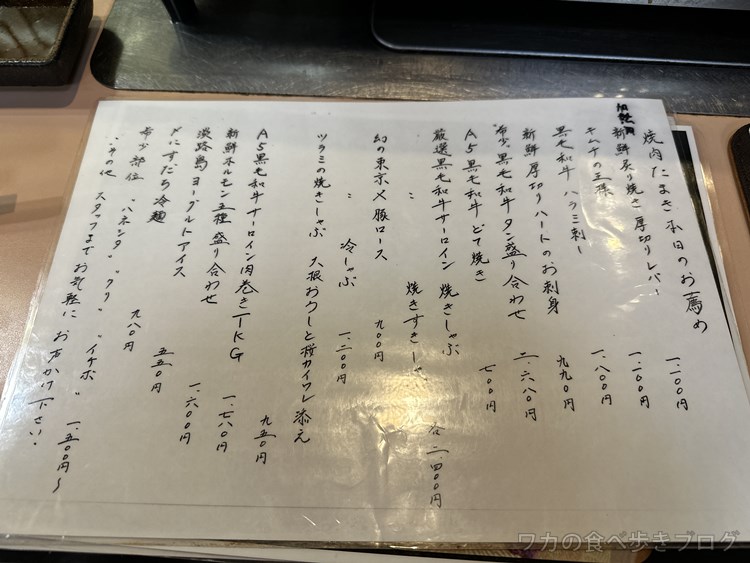 焼肉たまき本日のお薦め
加熱用
新鮮炙り焼き厚切りレバー 一.一〇〇円
キムチの王様 一.一〇〇円
黒毛和牛ハラミ刺し 一.八〇〇円
新鮮厚切りハートのお刺身 九九〇円
"希少"黒毛和牛タン盛り合わせ 二.六八〇円
A5黒毛和牛どて焼き 七〇〇円
厳選黒毛和牛サーロイン 焼きしゃぶ
〃 焼きすきしゃぶ 各二.四〇〇円
幻の東京X豚ロース 九〇〇円
〃 冷しゃぶ 一.二〇〇円
ツラミの焼きしゃぶ 大根おろしと桜カイワレ添え 九五〇円
A5黒毛和牛サーロイン肉巻きTKG 一.七八〇円
新鮮ホルモン五種盛り合わせ 一.六〇〇円
淡路島ヨーグルトアイス 五五〇円
〆にすだち冷麺 九八〇円
希少部位 "ハネシタ" "クリ" "イチボ" 一.五〇〇円〜
"その他 スタッフまでお気軽に お声かけ下さい。
ワカの食べ歩きブログ